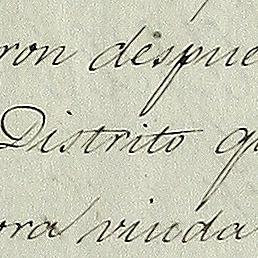 ron despue
Distrito q
ora viuda